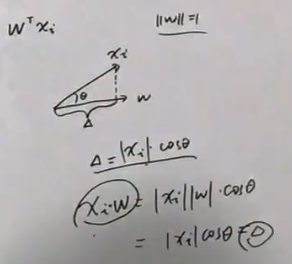 wᵀxᵢ ||w||=1
xᵢ
θ
w
Δ
Δ = |xᵢ|·cosθ
xᵢ·w = |xᵢ||w|·cosθ
= |xᵢ|cosθ = Δ